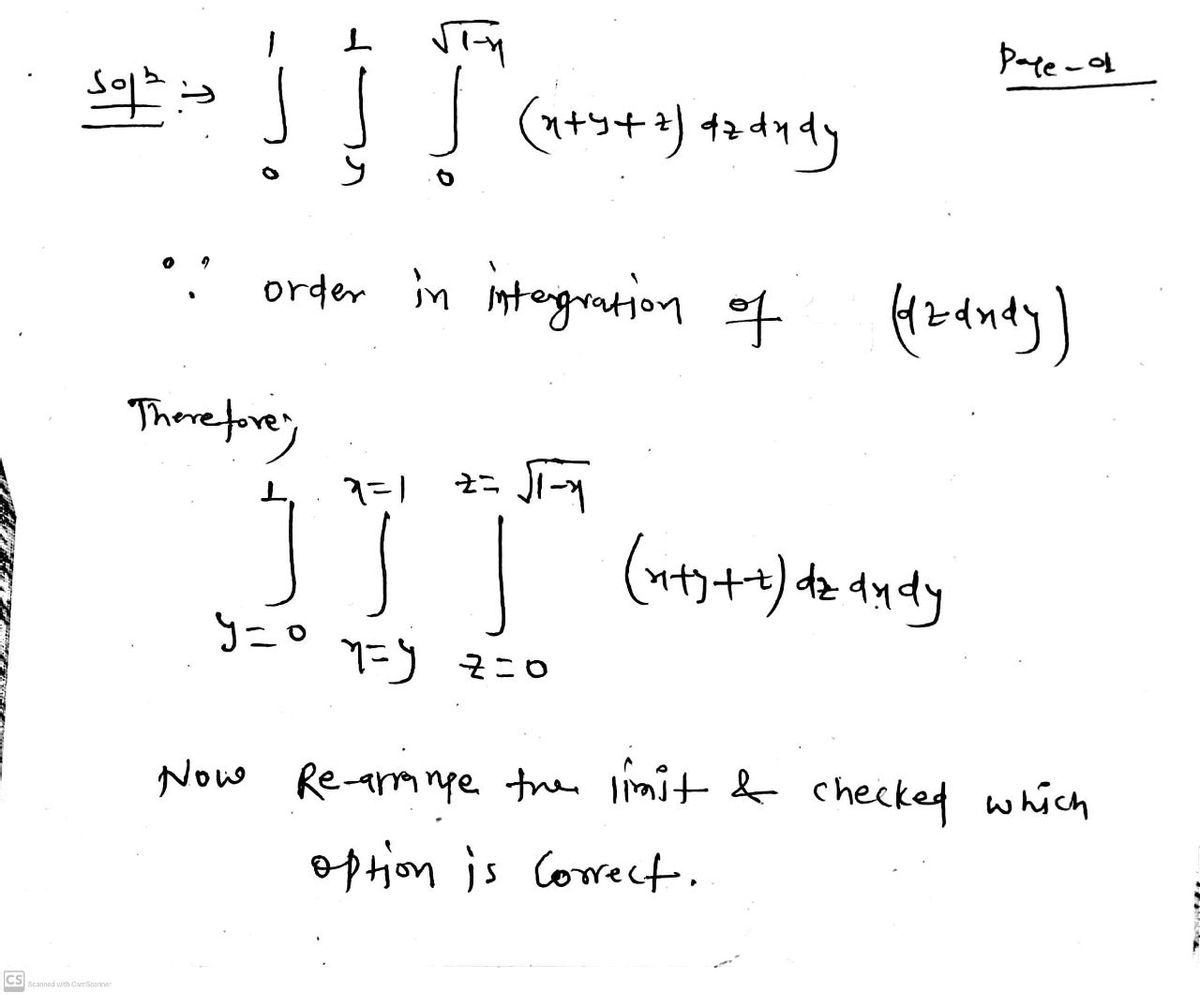 Page-01
Solⁿ :→ ∫₀¹ ∫_y^1 ∫₀^√1-x (x+y+z) dz dx dy
∵ order in intergration of (dzdxdy)
Therefore,
∫_{y=0}^{1} ∫_{x=y}^{x=1} ∫_{z=0}^{z=√1-x} (x+y+z) dz dx dy
Now Re-arrange the limit & checked which
option is Correct.
CS Scanned with CamScanner